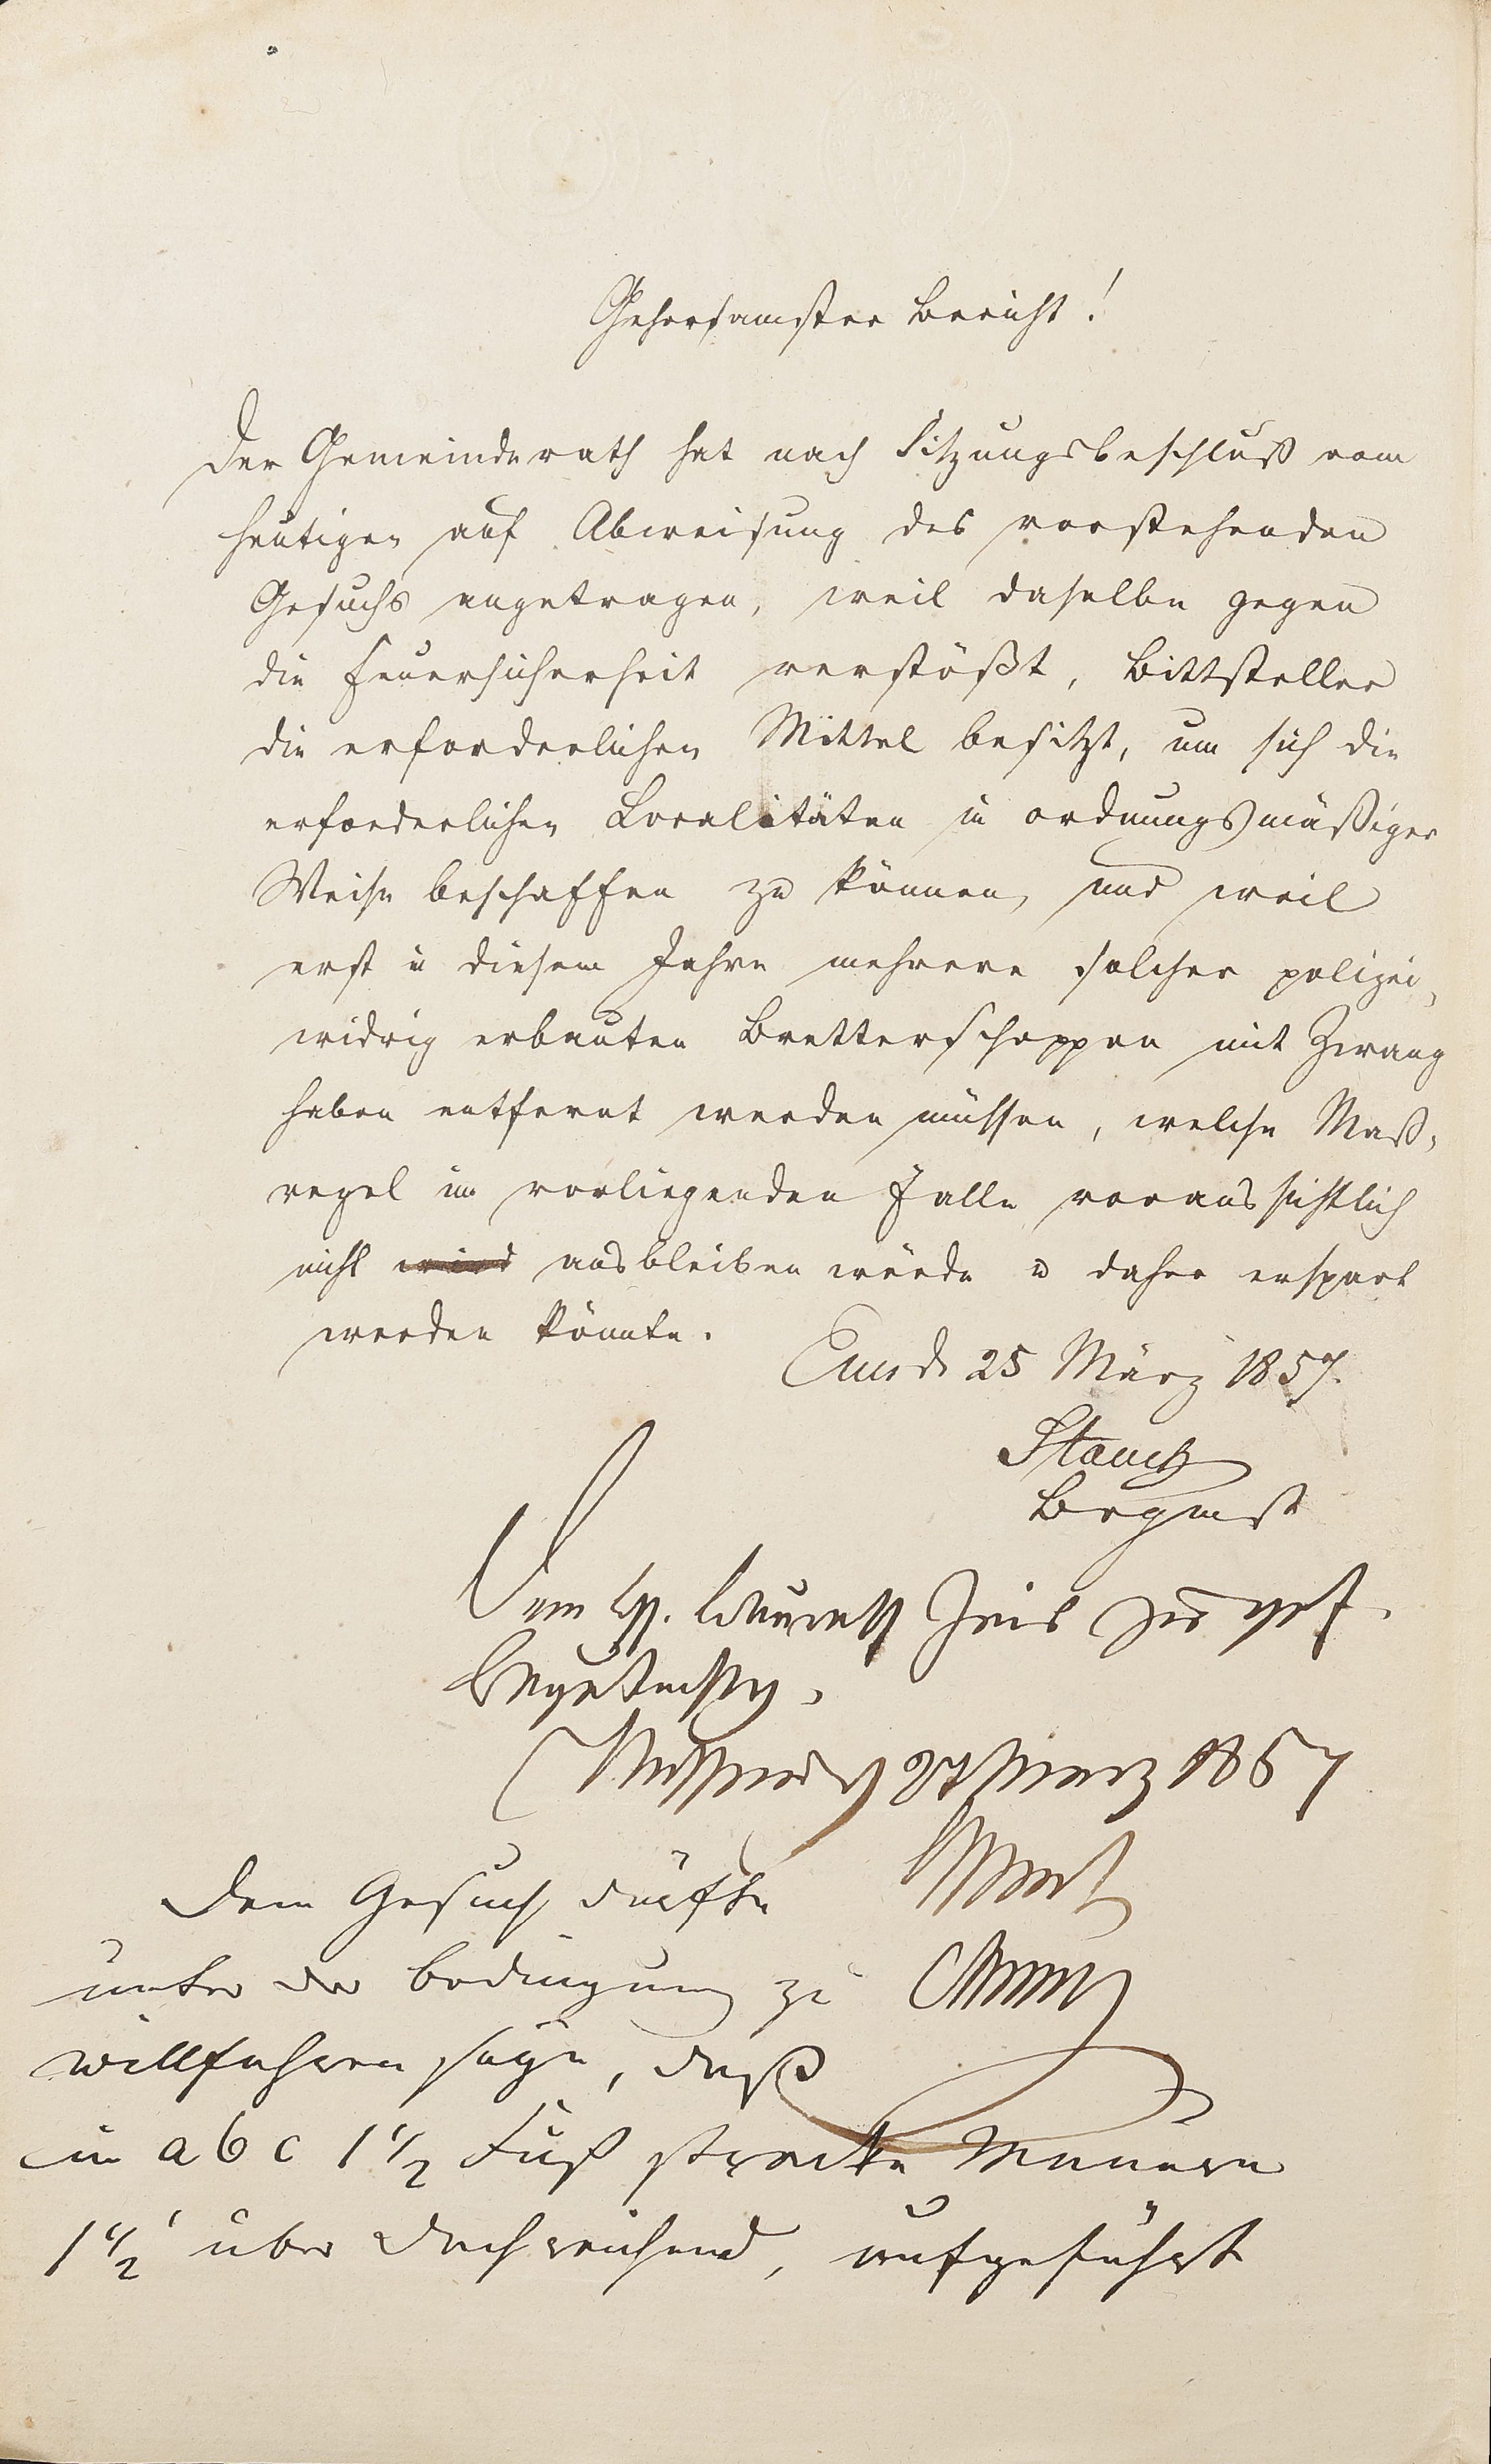 Gehorsamster Bericht!
Der Gemeinderath hat nach Sitzungsbeschluß vom
heutigen auf Abweisung des vorstehenden
Gesuchs angetragen, weil daselbe gegen
die Feuersicherheit verstößt, Bittsteller
die erforderlichen Mittel besitzt, um sich die
erforderlichen Localitäten in ordnungsmäßiger
Weise beschaffen zu können, und weil
erst in diesem Jahre mehrere solcher polizei,
widrig erbauten Bretterschoppen mit Zwang
haben entfernt werden müssen, welche Maß,
regel im vorliegenden Falle voraussichtlich
nicht wird ausbleiben würde u daher erspart
werden könnte.
Ems d. 25 März 1857.
Stauch
Brgmst
Dem H. Baurath Zais zur gef.
Begutachtg.
Nassau d. 27 März 1857
Dem Gesuch dürfte
unter der Bedingung zu
willfahren seyn, daß
in a b c 1 1/2 Fuß starke Mauern
1 1/2' über Dach reichend, aufgeführt